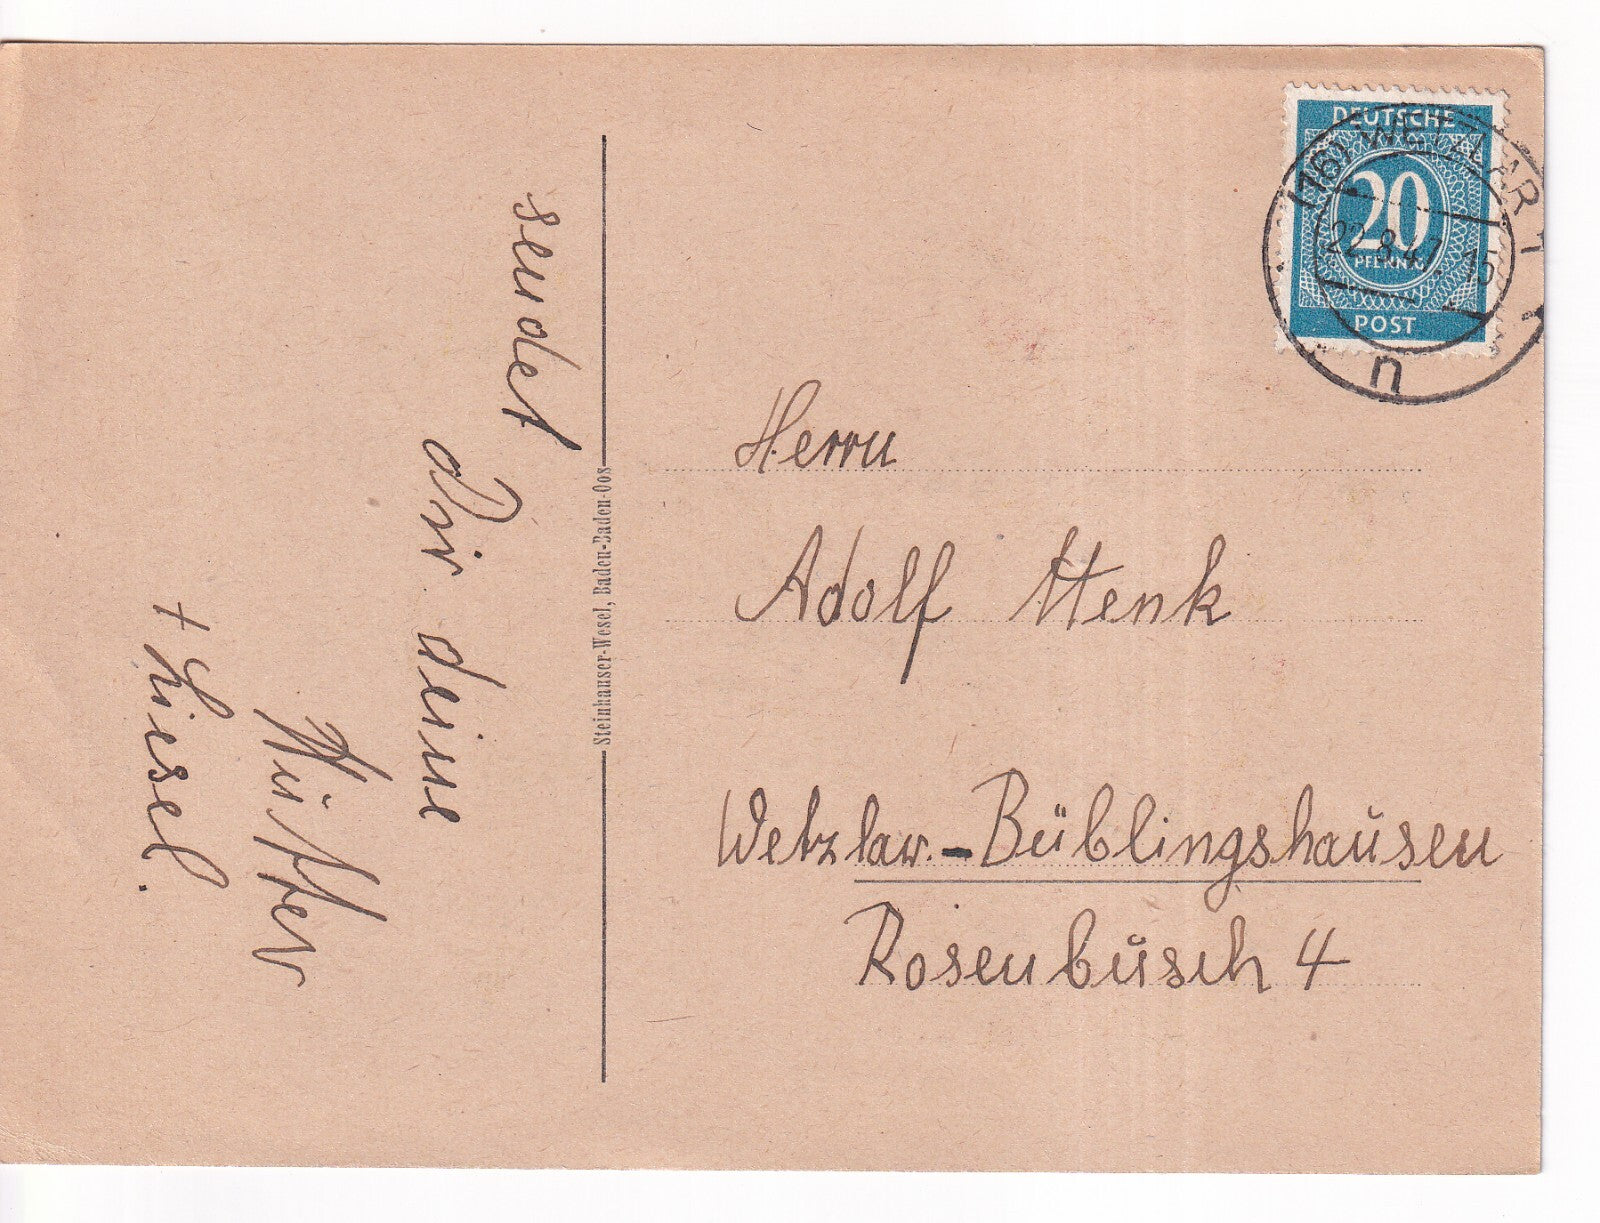 sendet
Dir deine
Mutter
+ Liesel.
Steinhauser-Wesel, Baden-Baden-Oos
DEUTSCHE
20
PFENNIG
POST
(16) WETZLAR 1
22.8.47. 15
n
Herrn
Adolf Henk
Wetzlar-Büblingshausen
Rosenbusch 4